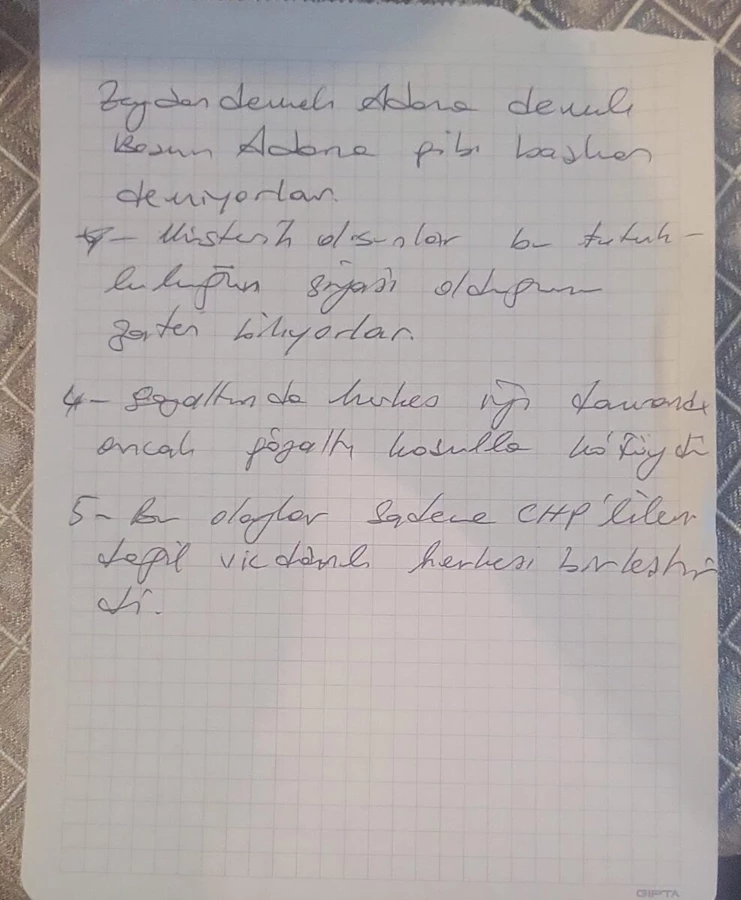 Zeydan demek Adana demek
Adana gibi başkan
demiyorlar.
- Müsterih olsunlar bu tutuk-
luluğun siyasi olduğunu
zaten biliyorlar.
4- gözaltında herkes iyi davrandı
ancak gözaltı koşulla kötüydü
5- Bu olaylar sadece CHP'lileri
değil vicdanlı herkesi birleştir
di.
GIPTA